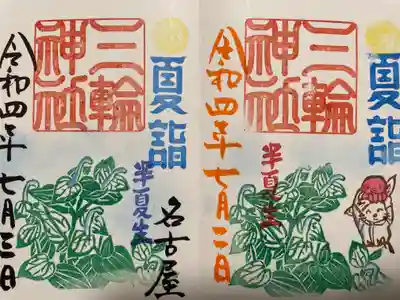 夏詣
三輪
神社
半夏生
名古屋
令和四年七月三日
夏詣
三輪
神社
半夏生
令和四年七月二日